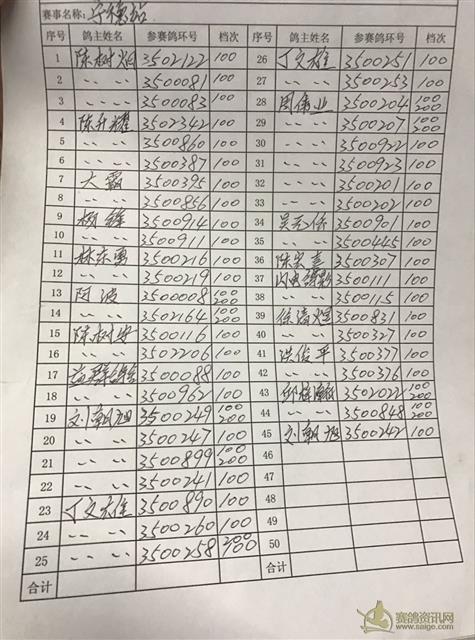 赛事名称：宁德站
序号 鸽主姓名 参赛鸽环号 档次 序号 鸽主姓名 参赛鸽环号 档次
1 陈树炯 3502122 100 26 丁文雄 3500251 100
2 、、 、、 3500081 100 27 、、 、、 3500253 100
3 、、 、、 3500083 100 28 周伟业 3500204 100 200
4 陈升耀 3502342 100 29 、、 、、 3500207 100 200
5 、、 、、 3500860 100 30 、、 、、 3500922 100
6 、、 、、 3500387 100 31 、、 、、 3500923 100
7 大霸 3500395 100 32 、、 、、 3500201 100
8 、、 、、 3500856 100 33 、、 、、 3500202 100
9 3500914 100 34 3500901 100
10 、、 、、 3500911 100 35 、、 、、 3500445 100
11 3500216 100 36 3500307 100
12 、、 、、 3500219 100 37 3500111 100
13 阿波 3500008 100 200 38 、、 、、 3500115 100
14 、、 、、 3502164 100 200 39 3500831 100
15 陈树安 3500116 100 40 、、 、、 3500327 100
16 、、 、、 3502206 100 41 洪俊平 3500377 100
17 3500088 100 42 、、 、、 3500376 100
18 、、 、、 3500962 100 43 3502022 100 200
19 刘朝旭 3500249 100 200 44 、、 、、 3500848 100 200
20 、、 、、 3500247 100 45 刘朝旭 3500242 100
21 、、 、、 3500899 100 200 46
22 、、 、、 3500241 100 47
23 3500890 100 48
24 、、 、、 3500260 100 49
25 、、 、、 3500258 200 100 50
合计 合计
赛鸽资讯网
www.saige.com